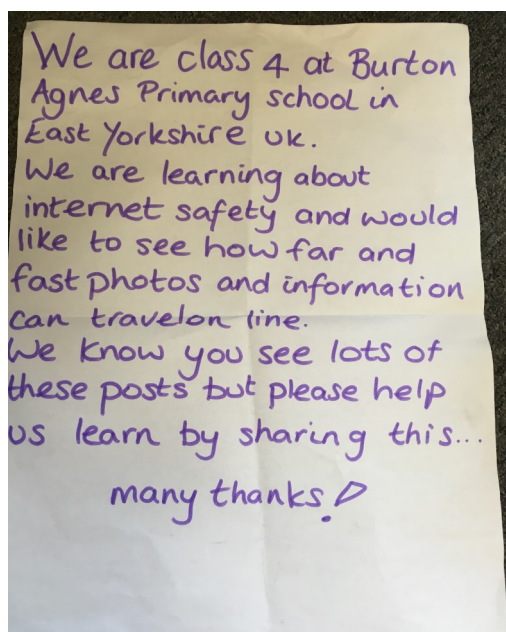 We are class 4 at Burton
Agnes Primary school in
East Yorkshire UK.
We are learning about
internet safety and would
like to see how far and
fast photos and information
can travelon line.
We know you see lots of
these posts but please help
us learn by sharing this...
many thanks!